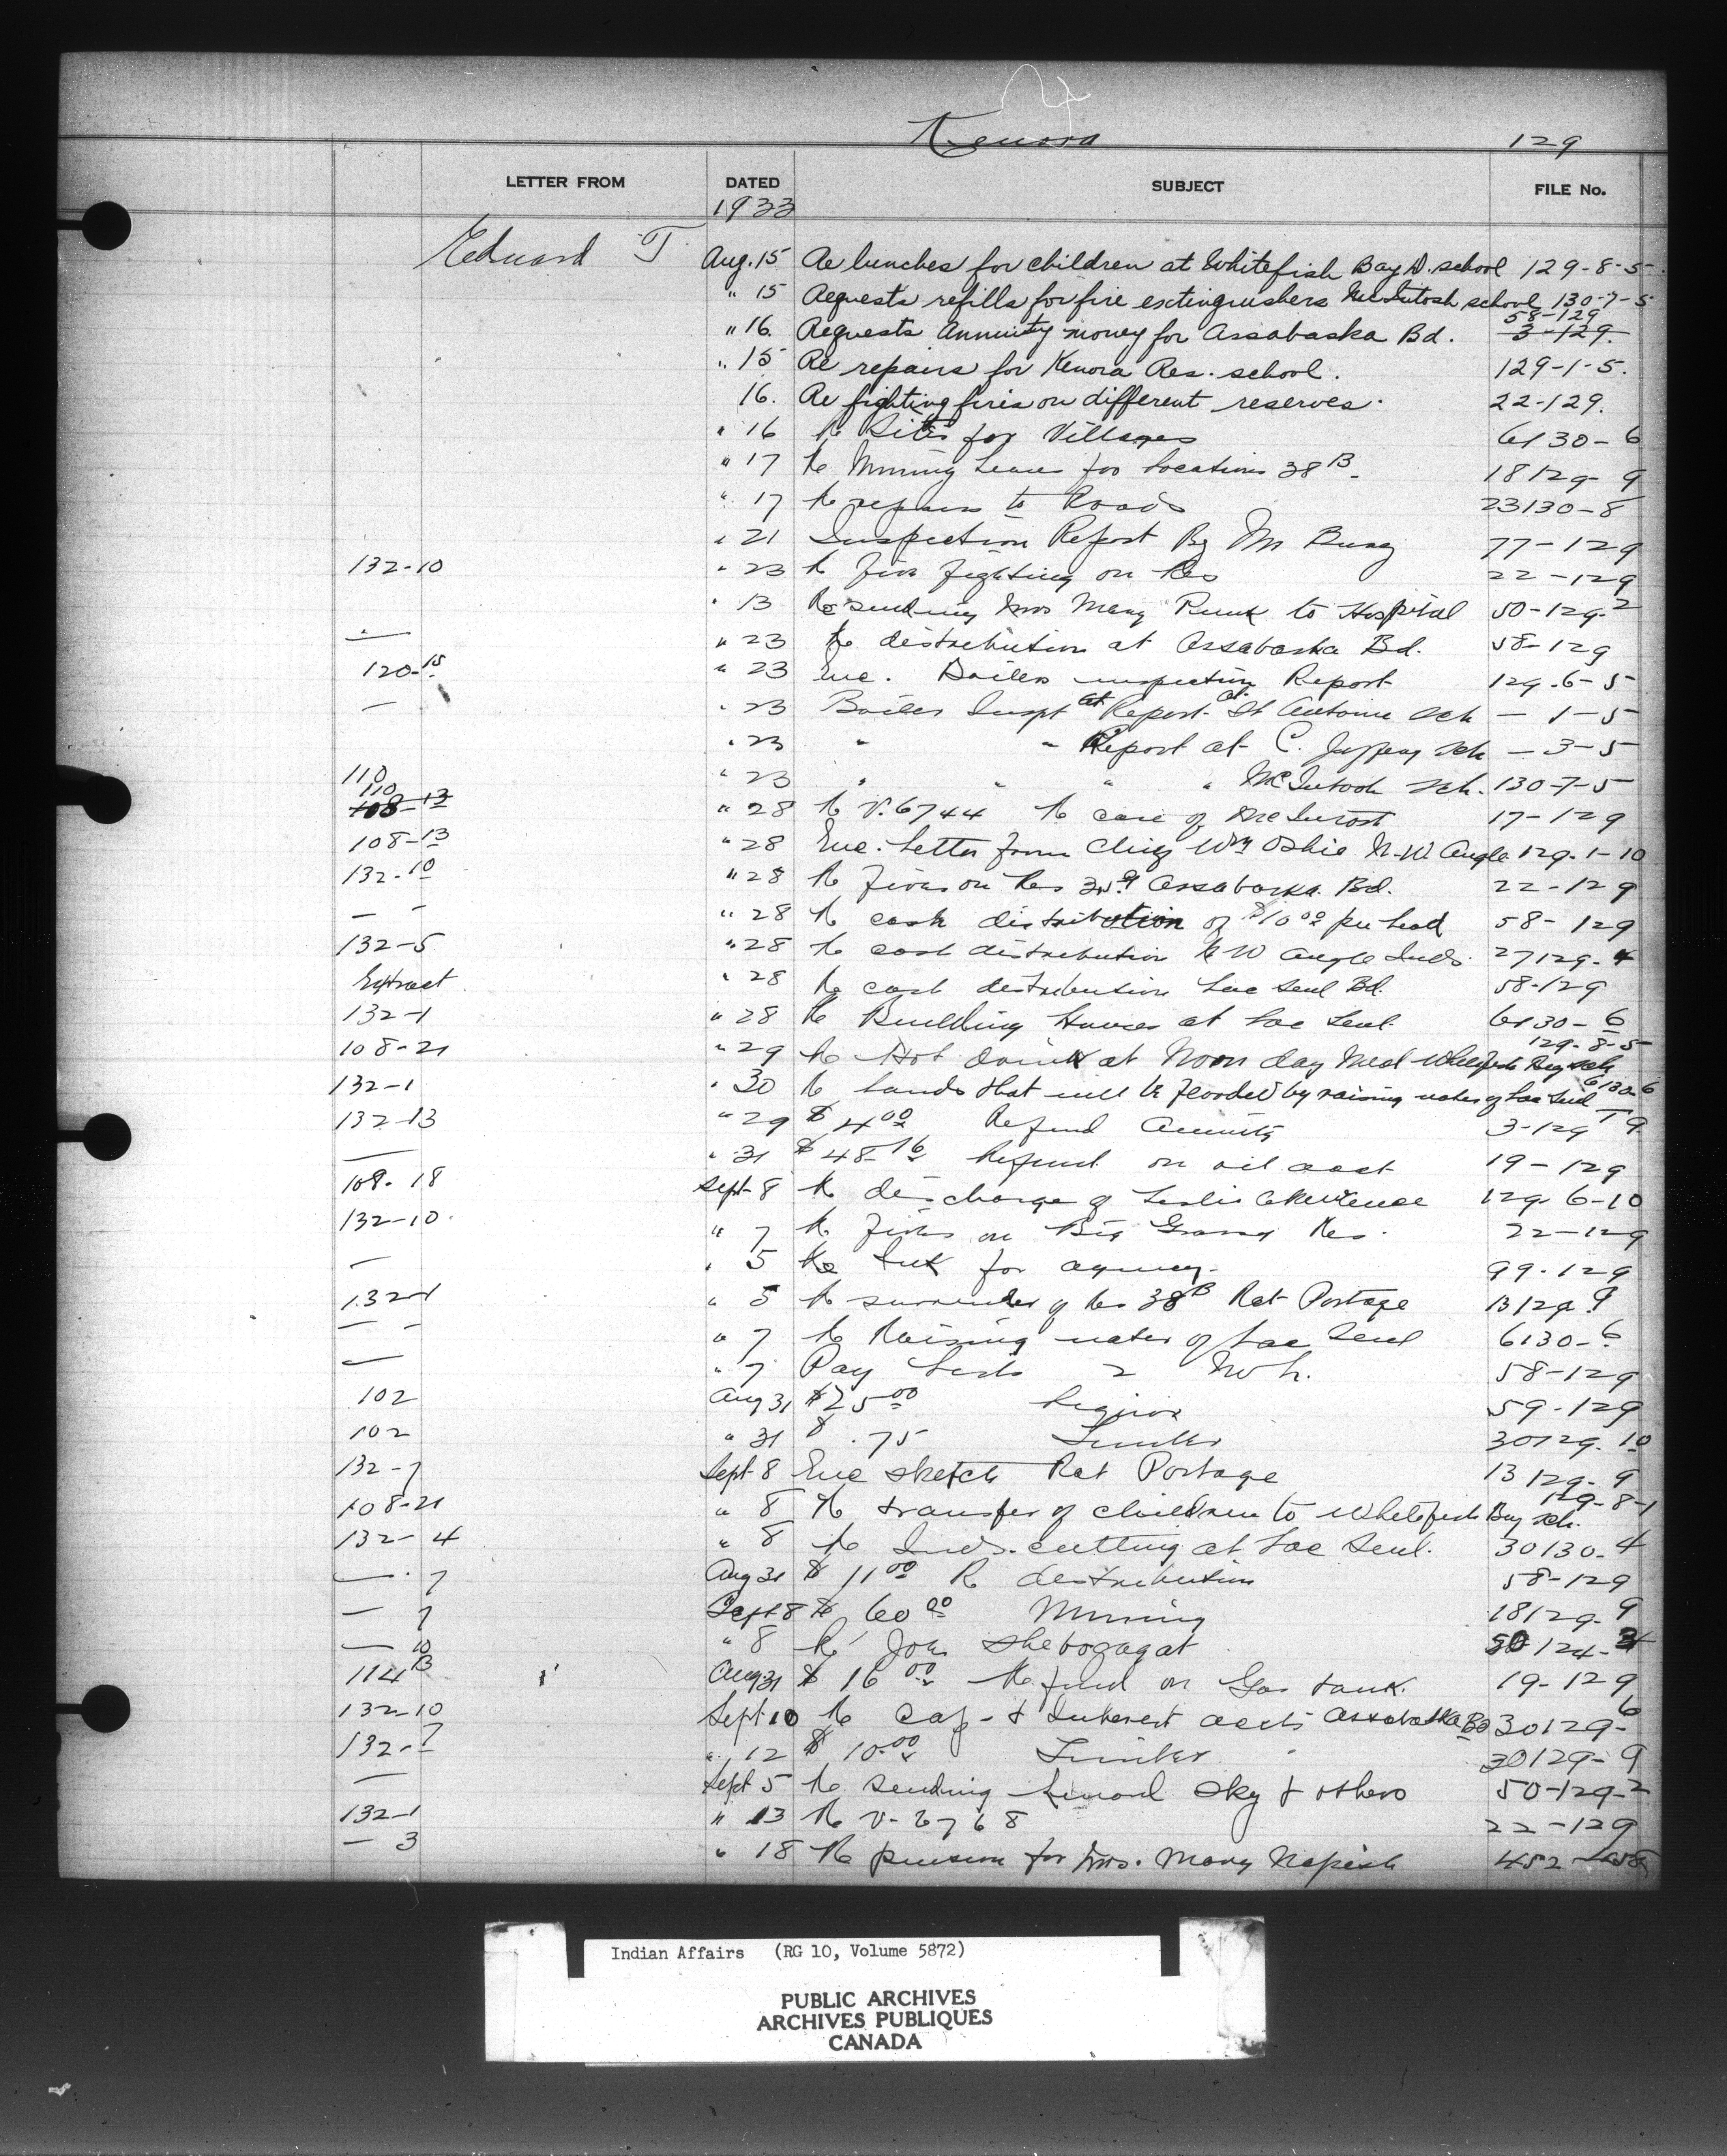 Kenora 129
LETTER FROM DATED SUBJECT FILE No.
1933
Edward T. Aug. 15 Re lunches for children at Whitefish Bay D. school 129-8-5
" 15 Requests refills for fire extinguishers McIntosh school 130-7-5
58-129
" 16 Requests Annuity money for Assabaska Bd. 3-129.
" 15 Re repairs for Kenora Res. school. 129-1-5.
16. Re fighting fires on different reserves. 22-129.
" 16 Re Sites for Villages 6130-6
" 17 Re Mining Lease for Locations 38B 18129-9
" 17 Re repairs to Roads 23130-8
" 21 Inspection Report By Mr 77-129
132-10 " 23 Re Fire Fighting on Res 22-129
" 13 Re sending Mrs Mary to Hospital 50-129-2
— " 23 Re distribution at Assabaska Bd. 58-129
120-15 " 23 Enc. Boiler inspection Report 129-6-5
— " 23 Boiler Inspt at Report at St Antoine Sch — 1-5
" 23 " " Report at C. Jeffrey Sch — 3-5
110 " 23 " " " " McIntosh Sch. 130-7-5
110
108-13 " 28 Re V. 6744 Re care of 17-129
108-13 " 28 Enc. Letter from Chief Wm Oshie N.W. Angle 129-1-10
132-10 " 28 Re Fires on Res Assabaska Bd. 22-129
— - " 28 Re cash distribution of $10.00 per head 58-129
132-5 " 28 Re cash distribution N W Angle Inds. 27129-4
Extract " 28 Re cash distribution Lac Seul Bd. 58-129
132-1 " 28 Re Building Houses at Lac Seul 6130-6
129-8-5
108-21 " 29 Re Hot drink at Noon day Meal Whitefish Bay Sch
132-1 " 30 Re lands that will be flooded by raising water of Lac Seul 6130-6
132-13 " 29 $4.00 Refund Annuity 3-129 T 9
— " 31 $48.16 Refund on oil acct 19-129
108-18 Sept 8 Re discharge of Leslie 129-6-10
132-10 " 7 Re Fires on Big Grassy Res. 22-129
— " 5 Re Ink for agency. 99-129
132-1 " 5 Re surrender of Res 38B Rat Portage 13129-9
— - " 7 Re Raising water of Lac Seul 6130-6
— " 7 Pay Lists 58-129
102 Aug 31 $25.00 Liquor 59-129
102 " 31 $ .75 Timber 30129-10
132-7 Sept 8 Enc sketch Rat Portage 13129-9
129-8-1
108-21 " 8 Re transfer of children to Whitefish Bay Sch.
132-4 " 8 Re Inds. cutting at Lac Seul. 30130-4
— 7 Aug 31 $11.00 Re distribution 58-129
— 7 Sept 8 $60.00 Mining 18129-9
— 10 " 8 Re Joe Shebogagat
114B Aug 31 $16.00 Refund on Gas tank. 19-129
132-10 Sept 10 Re Cap. & Interest accts Assabaska Bd 30129-6
132-7 " 12 $10.00 Timber 30129-9
— Sept 5 Re sending Sky & others 50-129-2
132-1 " 13 Re V-6768 22-129
— 3 " 18 Re pension for Mrs. Mary 452
Indian Affairs (RG 10, Volume 5872)
PUBLIC ARCHIVES
ARCHIVES PUBLIQUES
CANADA